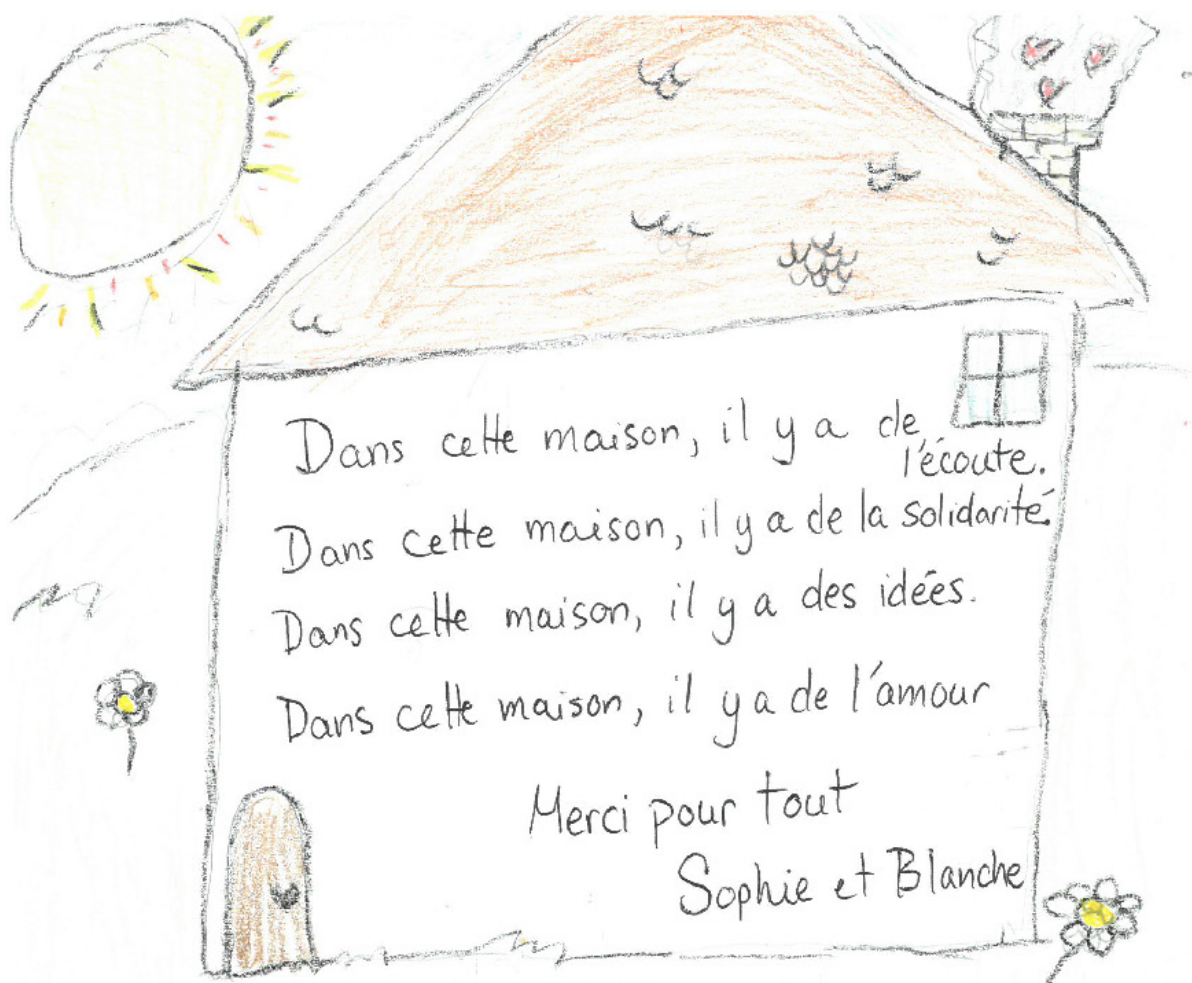 Dans cette maison, il y a de
l'écoute.
Dans cette maison, il y a de la solidarité.
Dans cette maison, il y a des idées.
Dans cette maison, il y a de l'amour
Merci pour tout
Sophie et Blanche